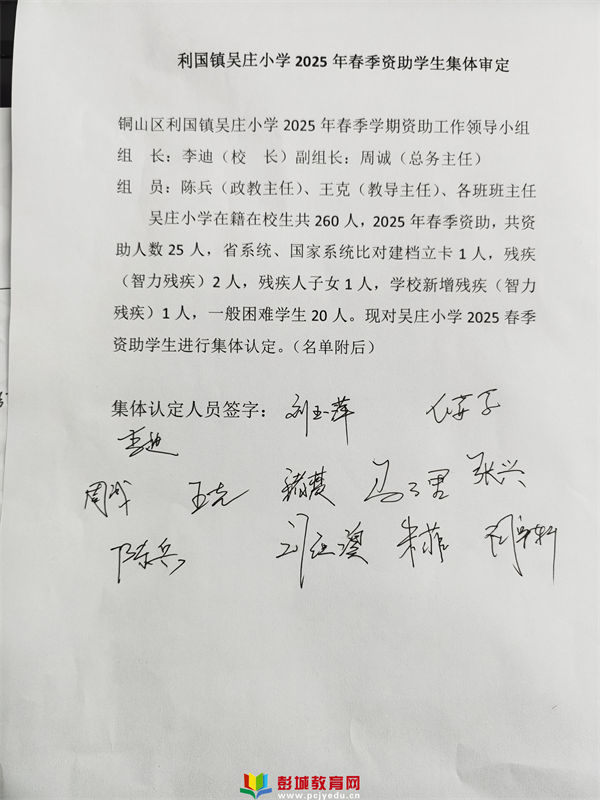 利国镇吴庄小学 2025 年春季资助学生集体审定
铜山区利国镇吴庄小学 2025 年春季学期资助工作领导小组
组 长：李迪（校 长）副组长：周诚（总务主任）
组 员：陈兵（政教主任）、王克（教导主任）、各班班主任
吴庄小学在籍在校生共 260 人，2025 年春季资助，共资
助人数 25 人，省系统、国家系统比对建档立卡 1 人，残疾
（智力残疾）2 人，残疾人子女 1 人，学校新增残疾（智力
残疾）1 人，一般困难学生 20 人。现对吴庄小学 2025 春季
资助学生进行集体认定。（名单附后）
集体认定人员签字： 刘玉萍
李迪
周诚 王克 张兴
陈兵 朱菲
彭城教育网
www.pcjyedu.cn